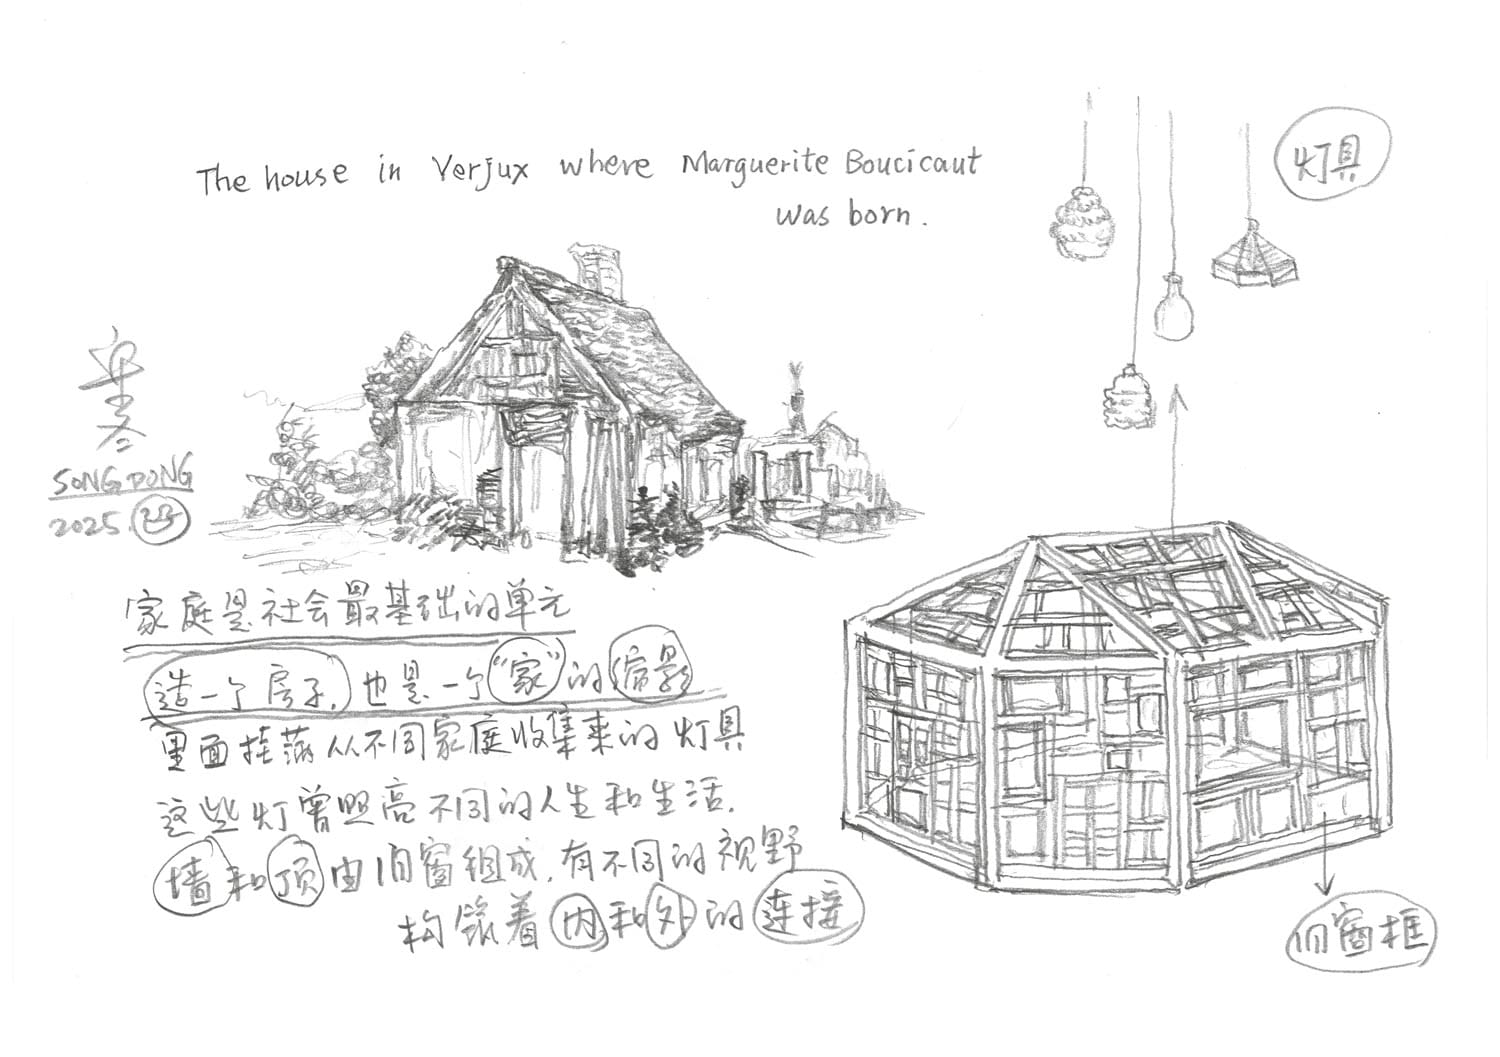 The house in Verjux where Marguerite Boucicaut
was born.
灯具
SONG DONG
2025.
家庭是社会最基础的单元
造一个房子,也是一个“家”的缩影
里面挂满从不同家庭收集来的灯具
这些灯曾照亮不同的人生和生活.
墙和顶由旧窗组成.有不同的视野
构筑着内和外的连接
旧窗框